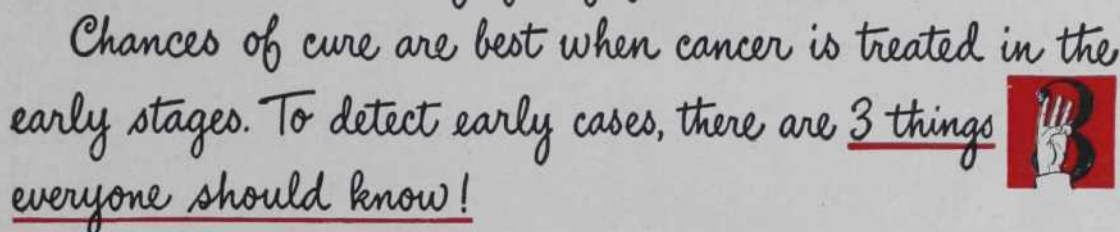 Chances of cure are best when cancer is treated in the
early stages. To detect early cases, there are 3 things 3
everyone should know!